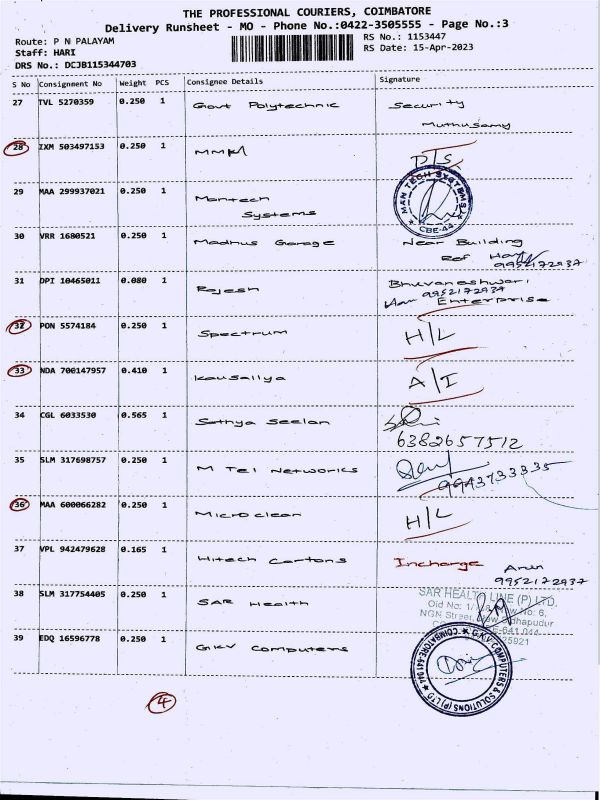 THE PROFESSIONAL COURIERS, COIMBATORE
Delivery Runsheet - MO - Phone No.:0422-3505555 - Page No.:3
Route: P N PALAYAM
RS No.: 1153447
Staff: HARI
RS Date: 15-Apr-2023
DRS No.: DCJB115344703
S No Consignment No Weight PCS Consignee Details Signature
27 TVL 5270359 0.250 1 Govt Polytechnic Security
Muthusamy
28 IXM 503497153 0.250 1 MMM D/S
29 MAA 299937021 0.250 1 Mantech
Systems
MAN TECH SYSTEMS
CBE-44
30 VRR 1680521 0.250 1 Madhus Garage Near Building
Ref
9952172937
31 DPI 10465011 0.080 1 Rajesh Bhuvaneshwari
9952172937
Enterprise
32 PON 5574184 0.250 1 Spectrum H/L
33 NDA 700147957 0.410 1 Kousallya A/I
34 CGL 6033530 0.565 1 Sathya Seelan
6382657512
35 SLM 317698757 0.250 1 M Tel Networks
9943733335
36 MAA 600066282 0.250 1 Microclean H/L
37 VPL 942479628 0.165 1 Hitech Cartons Incharge Arun
9952172937
38 SLM 317754405 0.250 1 SAR Health
SAR HEALTH LINE (P) LTD.
Old No: 1/ No: 6,
NGN Street,
39 EDQ 16596778 0.250 1 GKV Computers
G.K.V. COMPUTERS & SOLUTIONS (P) LTD
4